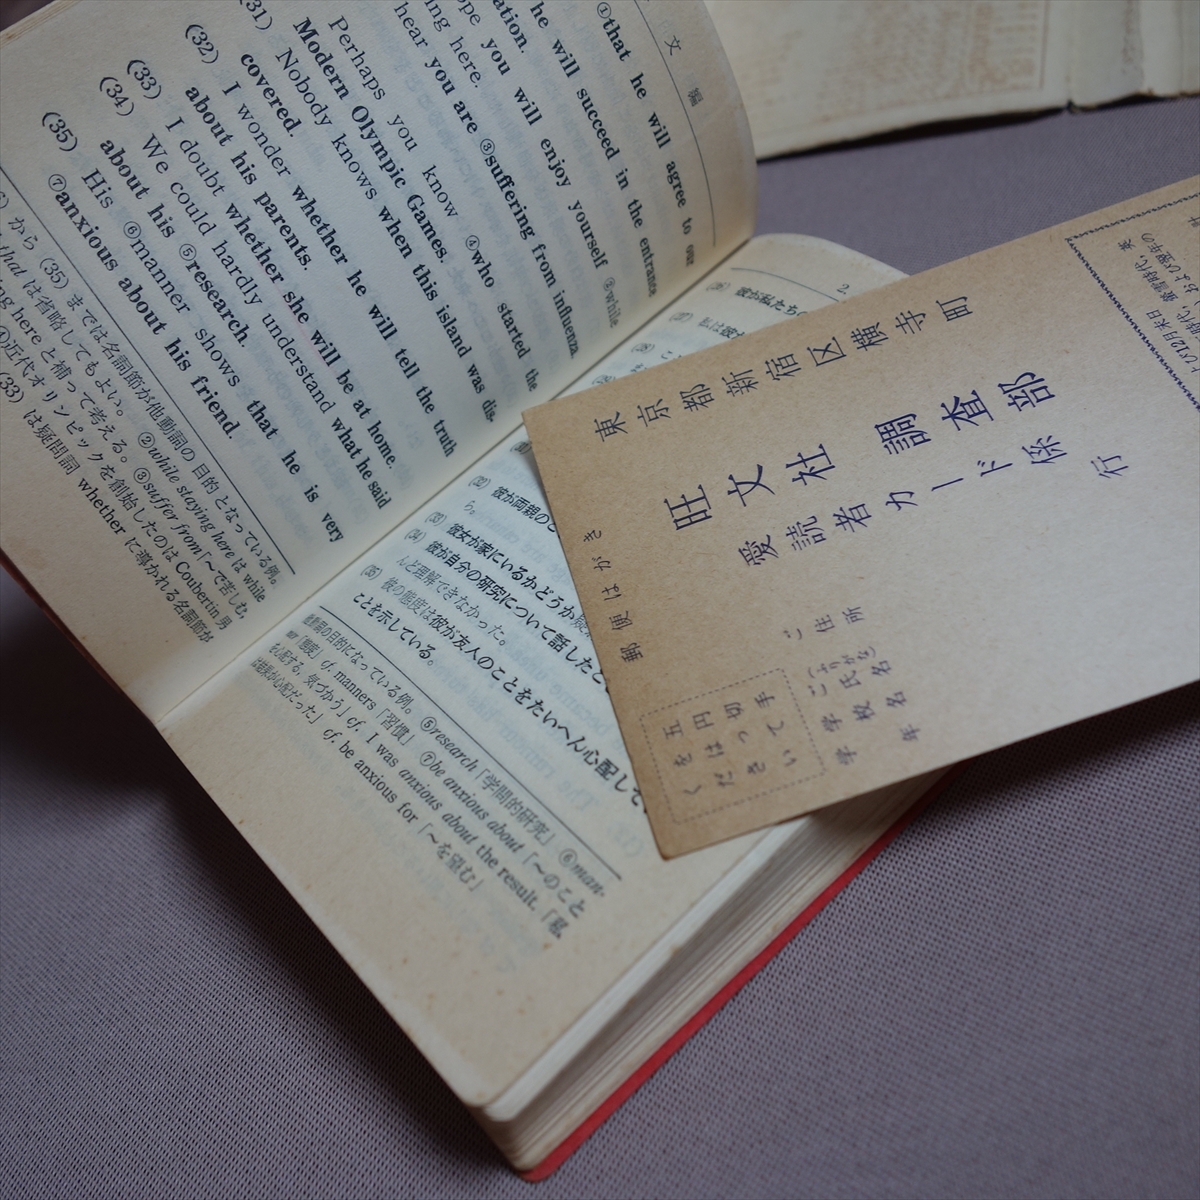 文編
①that he will agree to our
he will succeed in the entrance
ation.
you will enjoy yourself ②while
ing here.
hear you are ③suffering from influenza.
Perhaps you know ④who started the
Modern Olympic Games.
Nobody knows when this island was dis-
covered.
(32) I wonder whether he will tell the truth
about his parents.
(33) I doubt whether she will be at home.
(34) We could hardly understand what he said
about his ⑤research.
(35) His ⑥manner shows that he is very
⑦anxious about his friend.
から (35) までは名詞節が他動詞の目的となっている例。
that は省略してもよい。 ②while staying here は while
ing here と補って考える。 ③suffer from「〜で苦しむ」
④近代オリンピックを創始したのは Coubertin 男
(33) は疑問詞 whether に導かれる名詞節が
2.
彼が私たちの
(32) 彼が両親のこ
(33) 彼女が家にいるかどうか疑
(34) 彼が自分の研究について話したこ
んど理解できなかった。
(35) 彼の態度は彼が友人のことをたいへん心配して
ことを示している。
他動詞の目的になっている例。 ⑤research「学問的研究」 ⑥man-
ner「態度」 cf. manners「習慣」 ⑦be anxious about「〜のこと
を心配する, 気づかう」 cf. I was anxious about the result.「私
は結果が心配だった」 cf. be anxious for「〜を望む」
郵便はがき
東京都新宿区横寺町
旺文社 調査部
愛読者カード係 行
五円切手
をはって
ください
ご住所
(ふりがな)
ご氏名
学校名
学年